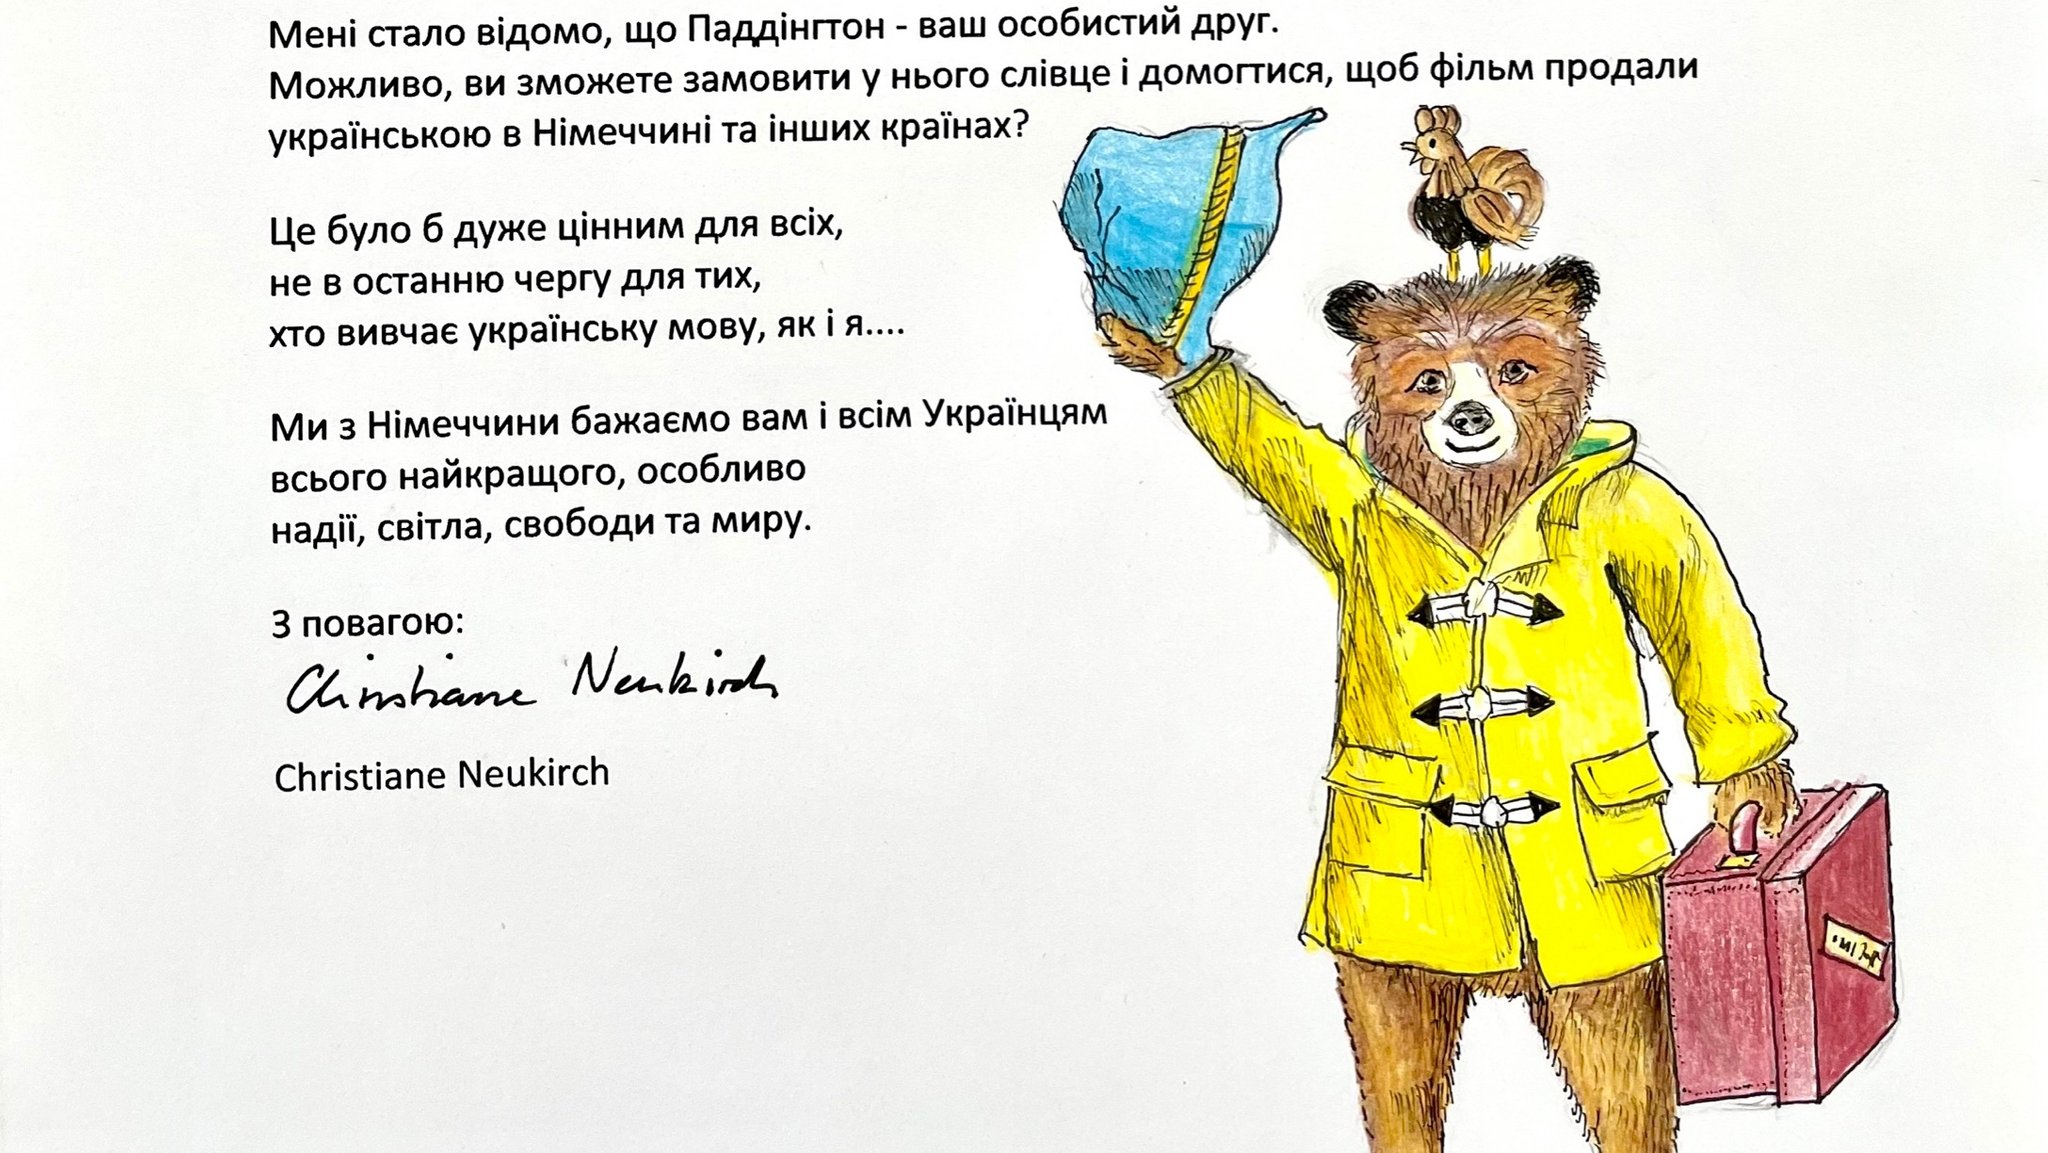 Мені стало відомо, що Паддінгтон - ваш особистий друг.
Можливо, ви зможете замовити у нього слівце і домогтися, щоб фільм продали
українською в Німеччині та інших країнах?
Це було б дуже цінним для всіх,
не в останню чергу для тих,
хто вивчає українську мову, як і я....
Ми з Німеччини бажаємо вам і всім Українцям
всього найкращого, особливо
надії, світла, свободи та миру.
З повагою:
Christiane Neukirch
Christiane Neukirch